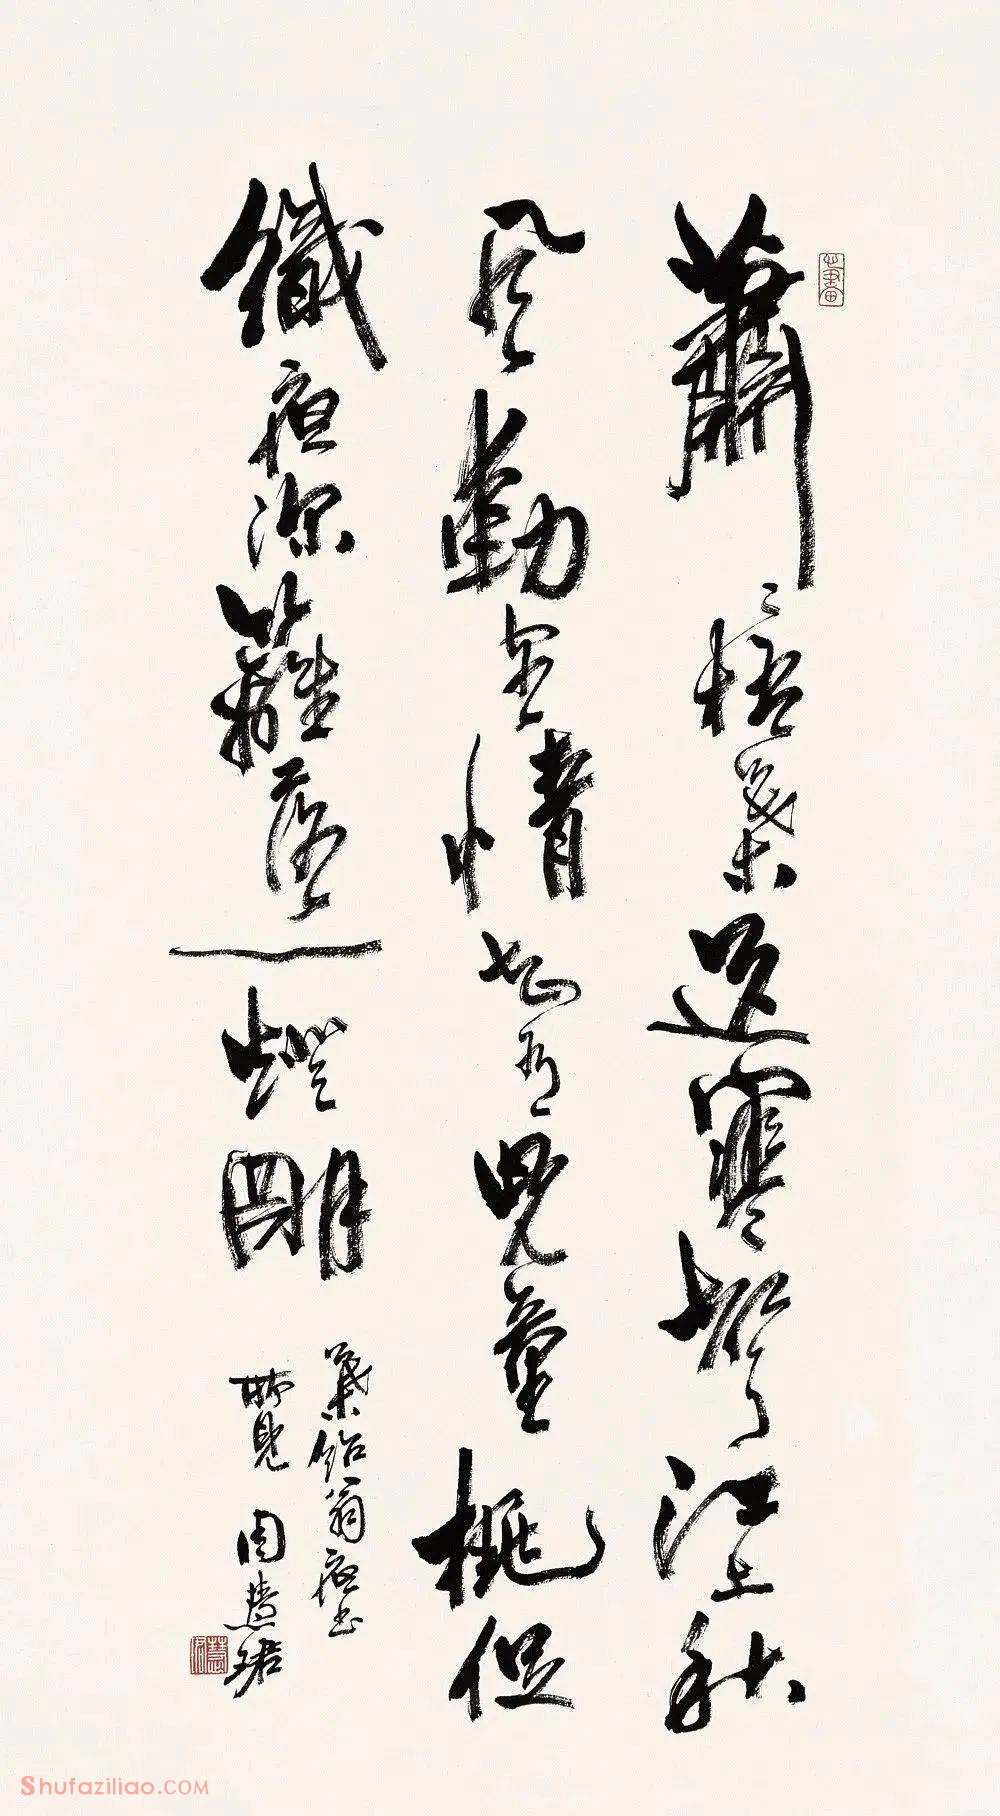 蕭〻梧葉送寒聲江上秋
風動客情知有兒童挑促
織夜深籬落一燈明
葉紹翁夜書
所見 周慧珺
Shufaziliao.COM